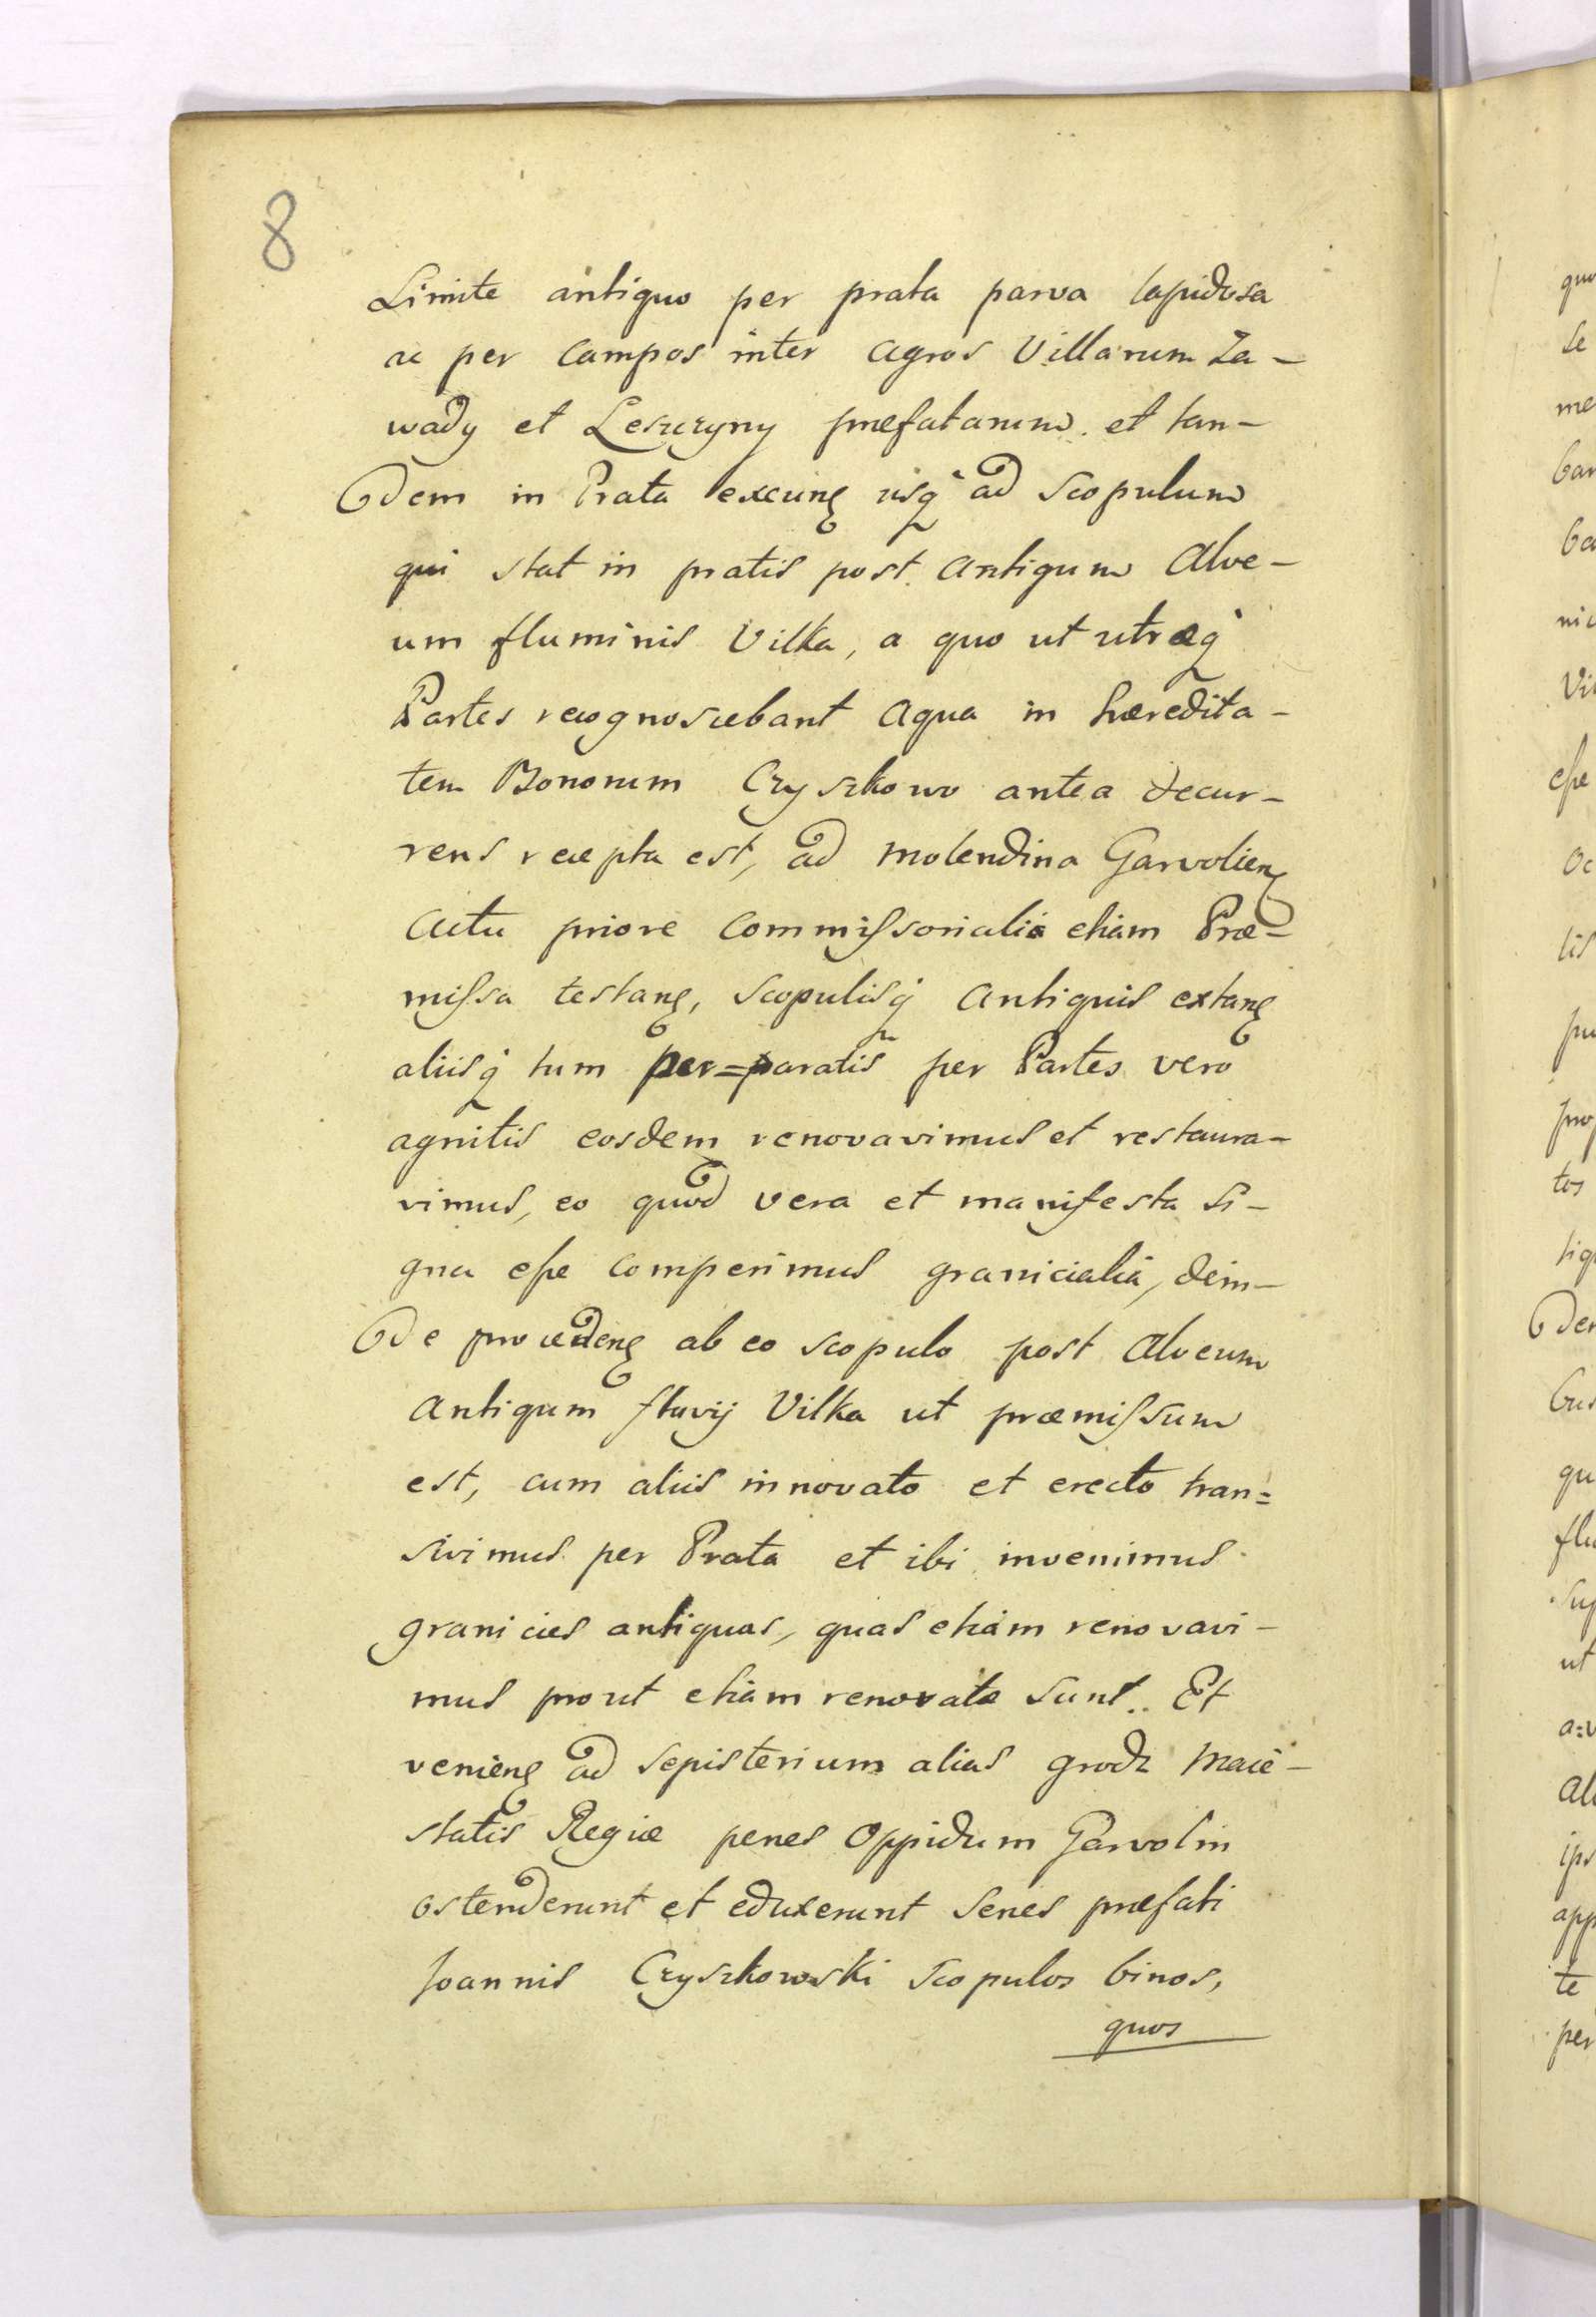 8
Limite antiquo per prata parva lapidosa
ac per campos inter agros Villarum Za-
wady et Leszczyny præfatarum et tan-
dem in Prata exeunę usq́ ad scopulum
qui stat in pratis post antiquum Alve-
um fluminis Vilka, a quo ut utræq́
Partes recognoscebant aqua in hæredita-
tem Bonorum Czyszkowo antea decur-
rens recepta est, ad molendina Garvolienę
actu priore commissorialia etiam Præ-
missa testanę, scopulisq́ antiquis extanę
aliisq́ tum per=paratis per Partes vero
agnitis eosdem renovavimus et restaura-
vimus, eo quod vera et manifesta si-
gna esse comperimus granicialia, dein-
de procedenę ab eo scopulo post Alveum
antiquum fluvij Vilka ut præmissum
est, cum aliis innovato et erecto tran=
sivimus per Prata et ibi invenimus
granicies antiquas, quas etiam renovavi-
mus prout etiam renovatæ sunt. Et
venienę ad sepisterium alias grodz Maie-
statis Regiæ penes Oppidum Garvolin
ostenderunt et eduxerunt Senes præfati
Joannis Czyszkowski scopulos binos,
quos